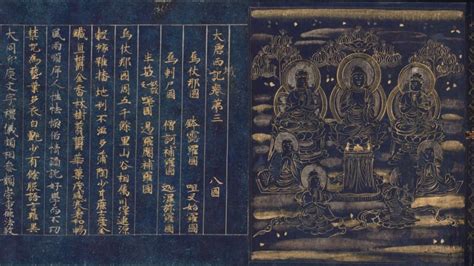 大唐西域記卷第三 八國
烏仗那國 鉢露羅國 呾叉始羅國
烏剌尸國 僧訶補羅國 迦濕彌羅國
半笯嗟國 曷邏闍補羅國
烏仗那國周五千餘里山谷相屬川澤連源
穀稼雖播地利不滋多蒲萄少甘蔗土產金
鐵宜鬱金香林樹蓊鬱花菓茂盛寒暑和暢
風雨順序人性怯懦俗情譎詭好學而不切
禁呪為藝業多衣白㲲少有餘服語言雖異
大同印度文字禮儀頗相參預